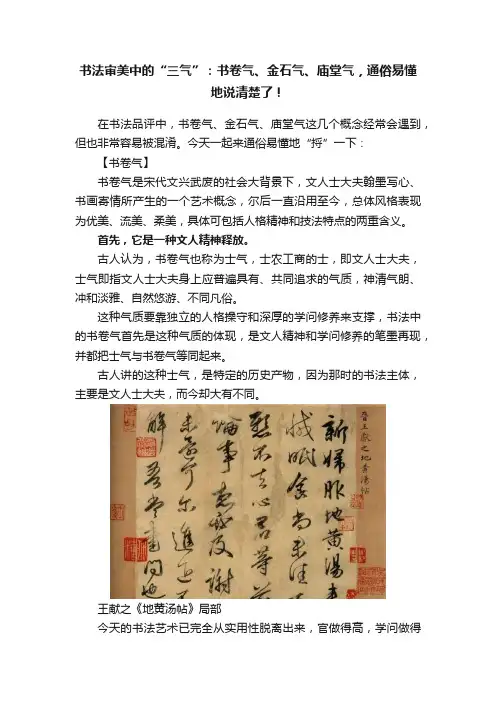 书法审美中的“三气”：书卷气、金石气、庙堂气，通俗易懂
地说清楚了！
在书法品评中，书卷气、金石气、庙堂气这几个概念经常会遇到，
但也非常容易被混淆。今天一起来通俗易懂地“捋”一下：
【书卷气】
书卷气是宋代文兴武废的社会大背景下，文人士大夫翰墨写心、
书画寄情所产生的一个艺术概念，尔后一直沿用至今，总体风格表现
为优美、流美、柔美，具体可包括人格精神和技法特点的两重含义。
首先，它是一种文人精神释放。
古人认为，书卷气也称为士气，士农工商的士，即文人士大夫，
士气即指文人士大夫身上应普遍具有、共同追求的气质，神清气朗、
冲和淡雅、自然悠游、不同凡俗。
这种气质要靠独立的人格操守和深厚的学问修养来支撑，书法中
的书卷气首先是这种气质的体现，是文人精神和学问修养的笔墨再现，
并都把士气与书卷气等同起来。
古人讲的这种士气，是特定的历史产物，因为那时的书法主体，
主要是文人士大夫，而今却大有不同。
晋王献之地黄湯帖
新婦服地黄湯来
減眠食尚未佳
懸不去心君等前
論事想必及謝
未還可尔進退
解吾當書問也
王献之《地黄汤帖》局部
今天的书法艺术已完全从实用性脱离出来，官做得高，学问做得